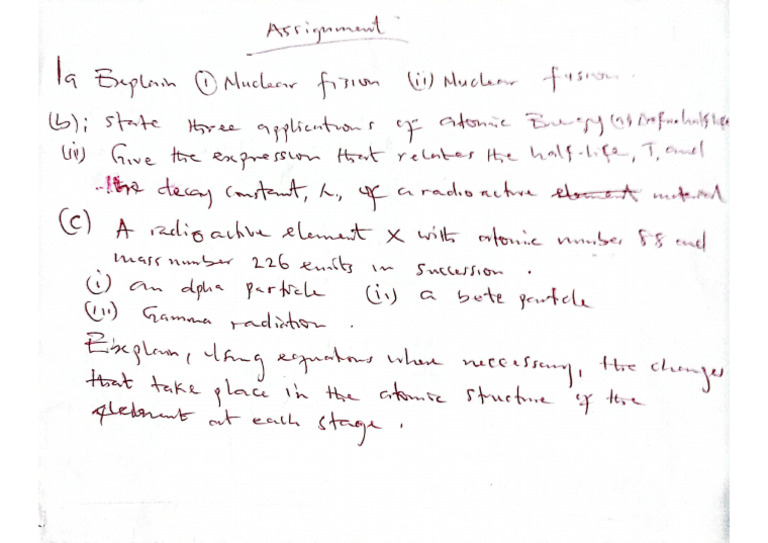 Assignment
1a Explain (i) Nuclear fission (ii) Nuclear fusion.
(b); State three applications of atomic Energy (ii) Define half life
(iii) Give the expression that relates the half-life, T, and
the decay constant, λ, of a radioactive element material
(c) A radioactive element X with atomic number 88 and
mass number 226 emits in succession.
(i) an alpha particle (ii) a beta particle
(iii) Gamma radiation.
Explain, using equations where neccessary, the changes
that take place in the atomic structure of the
element at each stage.